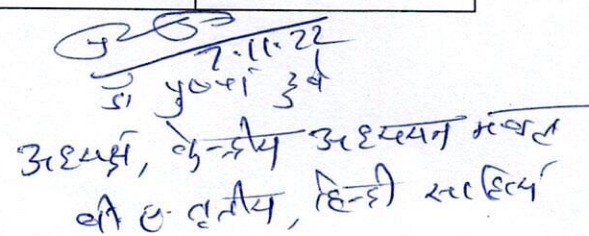 7.11.22
डॉ पुष्पा दुबे
अध्यक्ष, केन्द्रीय अध्ययन मण्डल
बी ए तृतीय, हिन्दी साहित्य